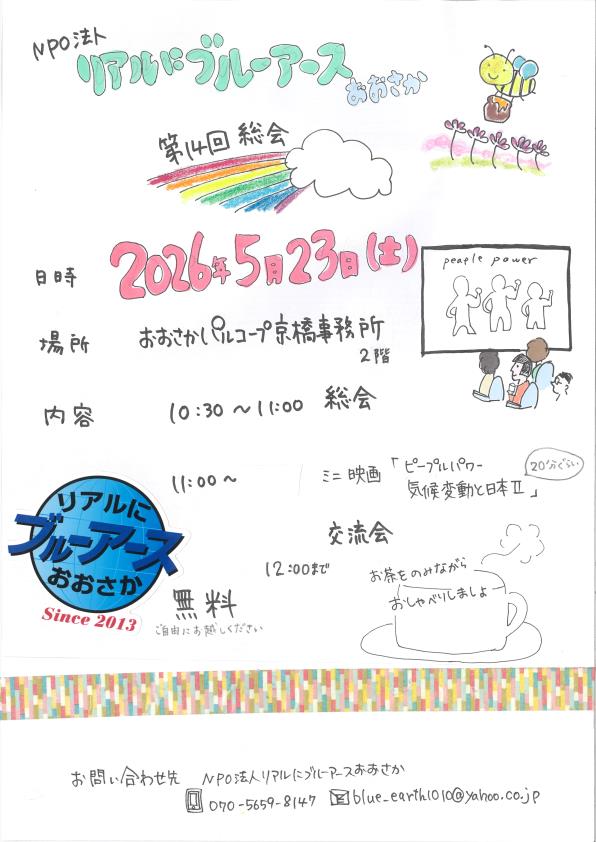 NPO法人
リアルにブルーアース
おおさか
第14回 総会
日時 2026年5月23日(土)
people power
場所 おおさかパルコープ京橋事務所
2階
内容 10:30～11:00 総会
11:00～ ミニ映画「ピープルパワー
気候変動と日本Ⅱ」
20分ぐらい
交流会
12:00まで
お茶をのみながら
おしゃべりしましょー
リアルに
ブルーアース
おおさか
Since 2013
無料
ご自由にお越しください
お問い合わせ先 NPO法人リアルにブルーアースおおさか
070-5659-8147 blue_earth1010@yahoo.co.jp